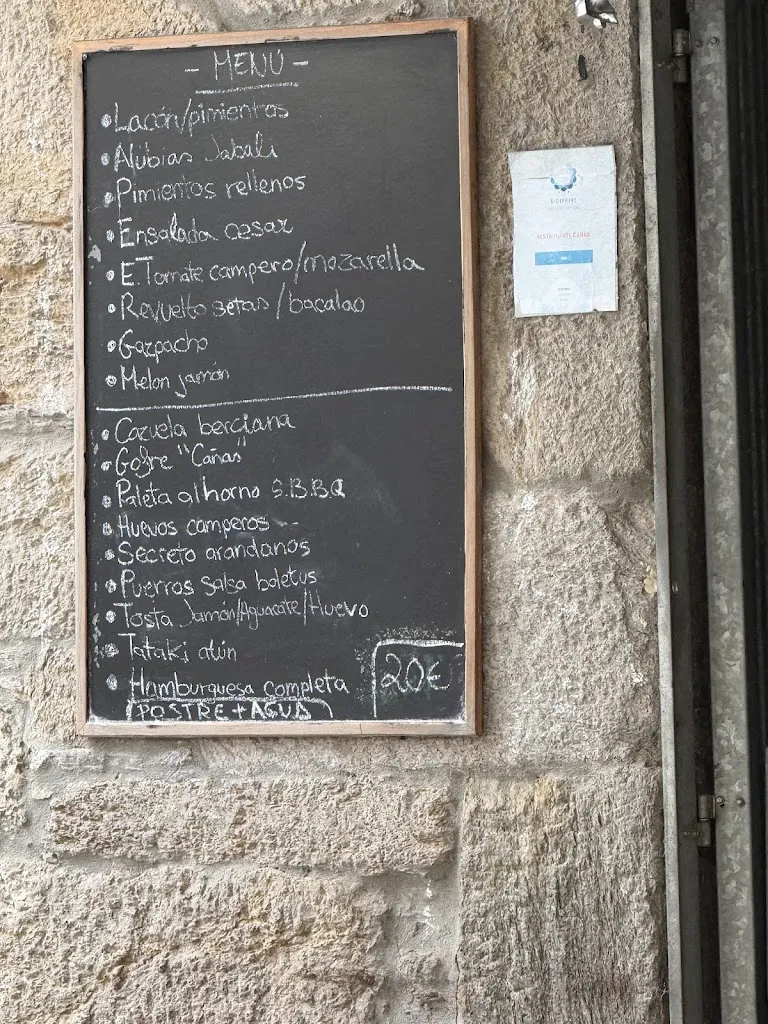 - MENÚ -
• Lacón/pimientos
• Alubias Jabalí
• Pimientos rellenos
• Ensalada cesar
• E. Tomate campero/mozarella
• Revuelto setas/bacalao
• Gazpacho
• Melon jamón
• Cazuela berciana
• Gofre "Cañas"
• Paleta al horno S.B.B.Q
• Huevos camperos
• Secreto arandanos
• Puerros salsa boletus
• Tosta Jamón/Aguacate/Huevo
• Tataki atún
• Hamburguesa completa
20€
POSTRE + AGUA
BIOSPHERE
RESTAURANTE CAÑAS